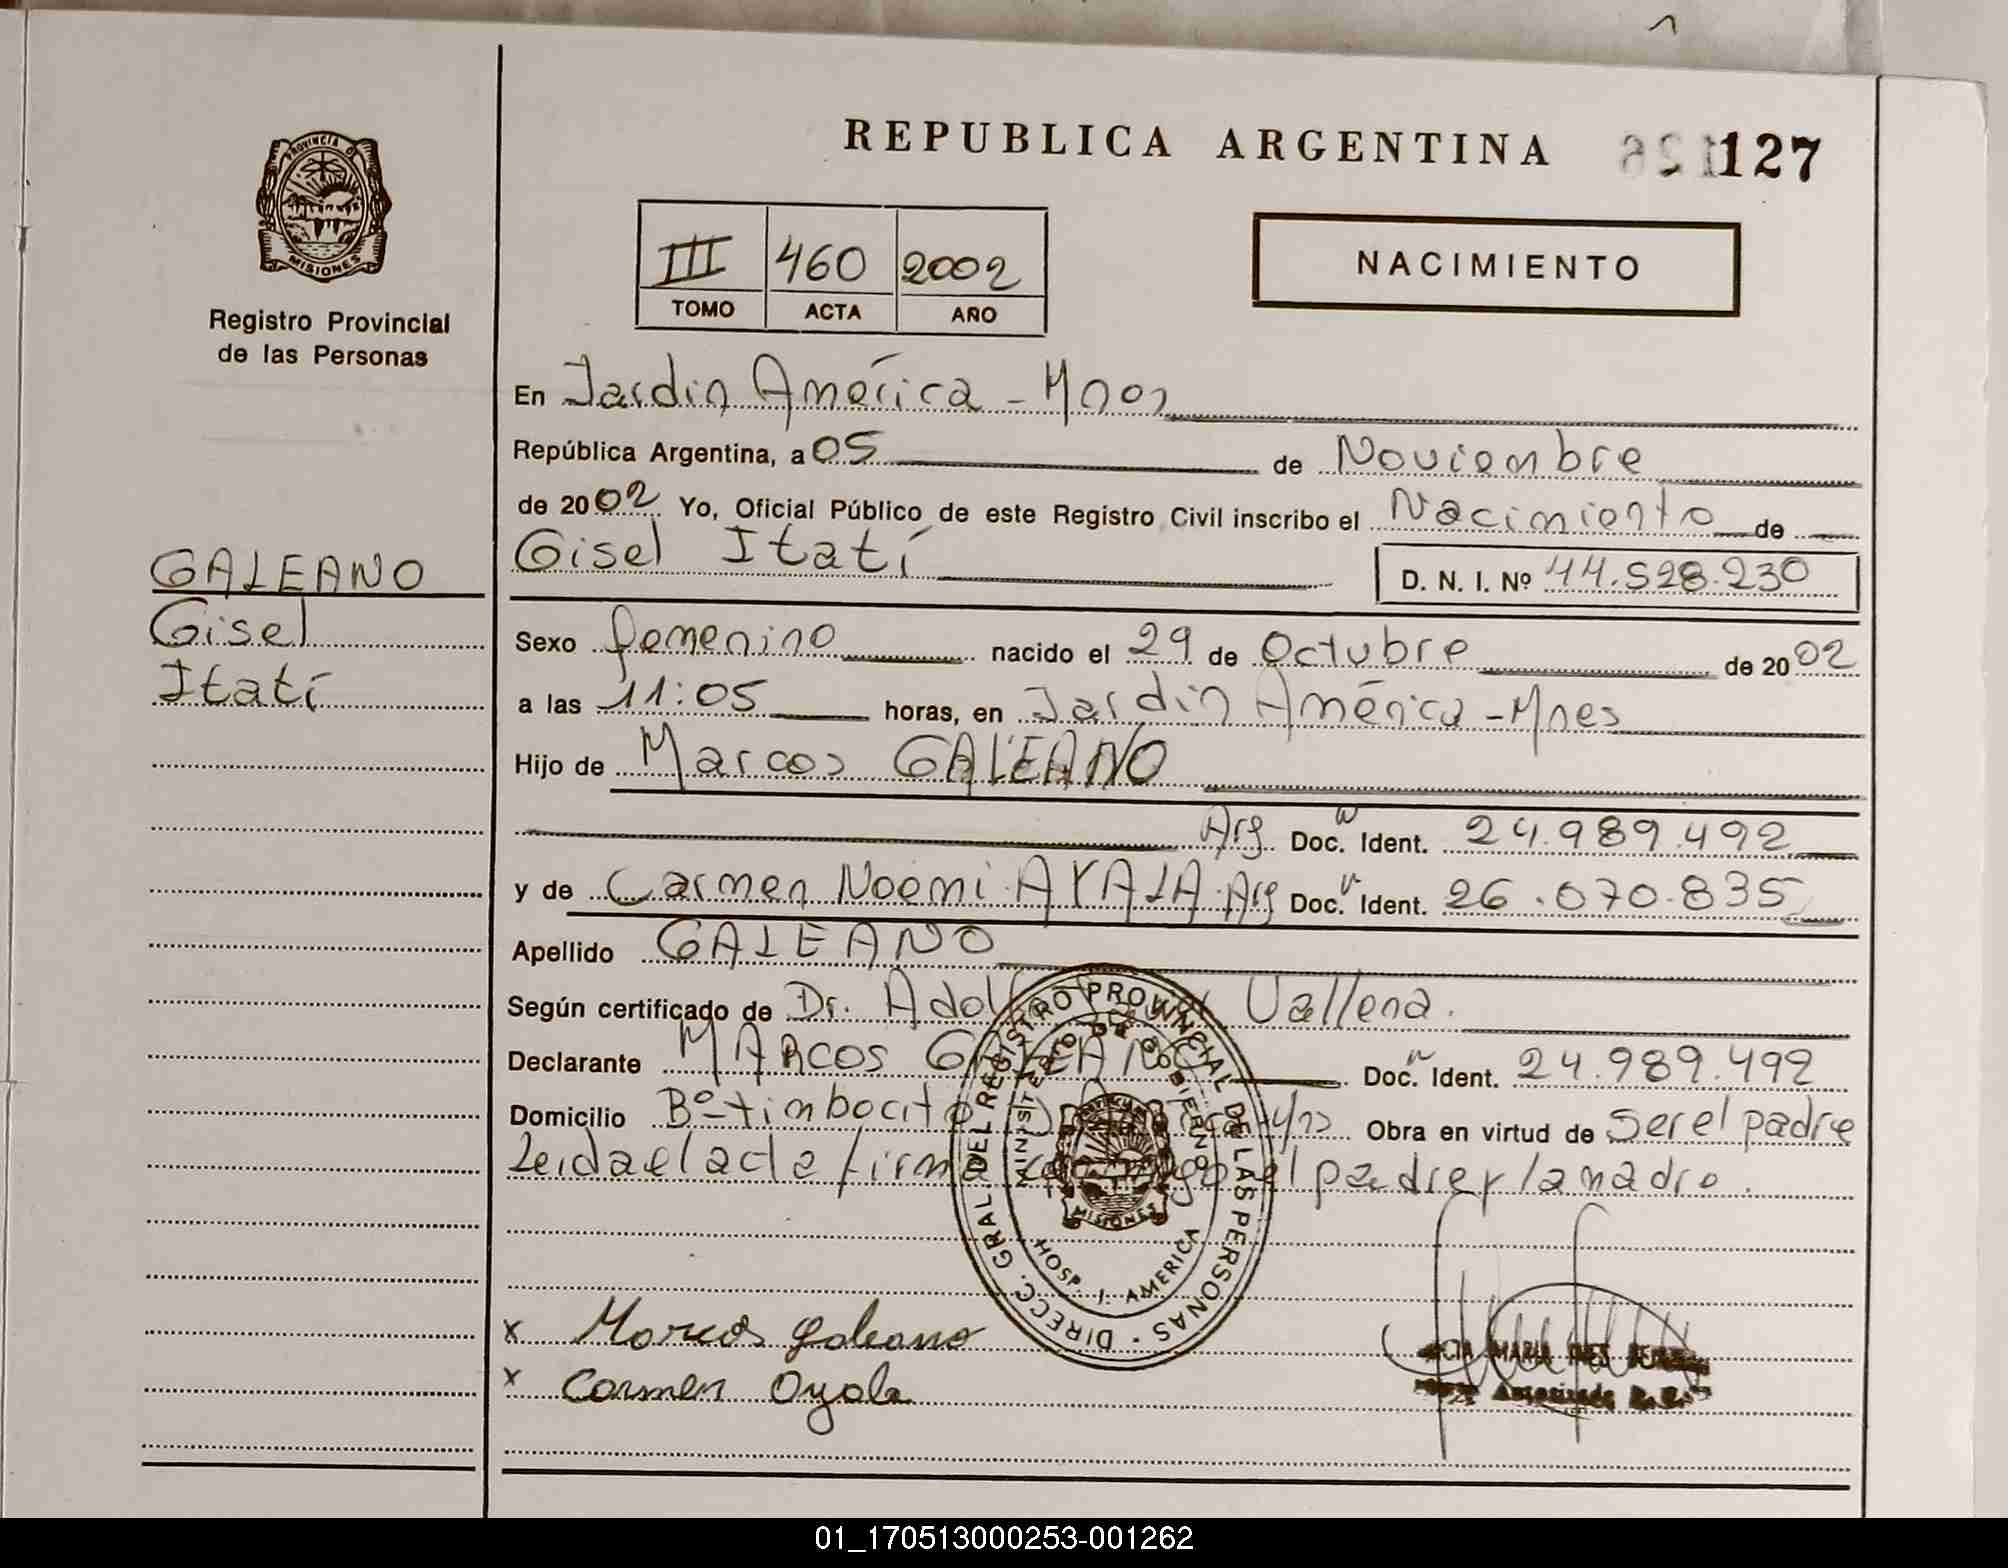 REPUBLICA ARGENTINA 127
PROVINCIA DE
MISIONES
Registro Provincial
de las Personas
III 460 2002
TOMO ACTA AÑO
NACIMIENTO
En Jardin América - Mnes
República Argentina, a 05 de Noviembre
de 2002 Yo, Oficial Público de este Registro Civil inscribo el Nacimiento de
Gisel Itatí
D. N. I. Nº 44.528.230
GALEANO
Gisel
Itatí
Sexo femenino nacido el 29 de Octubre de 2002
a las 11:05 horas, en Jardin América - Mnes
Hijo de Marcos GALEANO
Arg Doc. Ident. 24.989.492
y de Carmen Noemi AYALA Arg Doc. Ident. 26.070.835
Apellido GALEANO
Según certificado de Dr. Vallena.
Declarante MARCOS GALEANO Doc. Ident. 24.989.492
Domicilio Bº timbocito Obra en virtud de ser el padre
Leida el acta firma el padre y la madre.
DIRECC. GRAL. DEL REGISTRO PROVINCIAL DE LAS PERSONAS
MINISTERIO DE GOBIERNO
MISIONES
HOSP. J. AMERICA
x Marcos galeano
x Carmen Ayala
MARIA INES
Autorizada
01_170513000253-001262